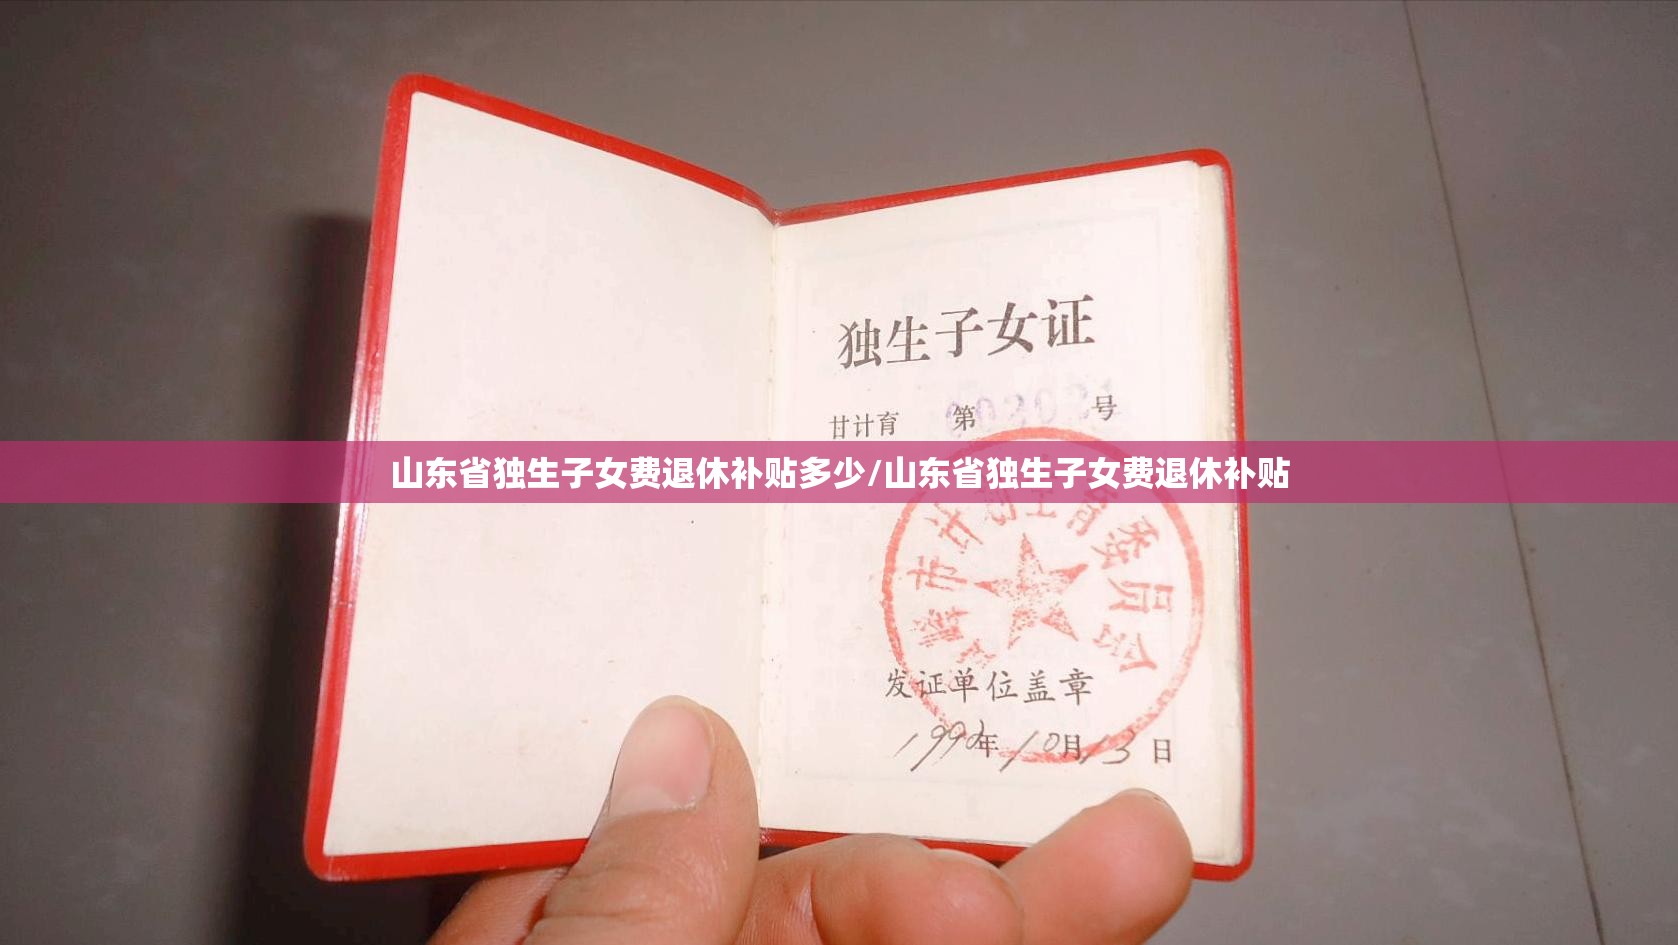 独生子女证
甘计育 第 号
山东省独生子女费退休补贴多少/山东省独生子女费退休补贴
市计划生育委员会
发证单位盖章
年10月13日